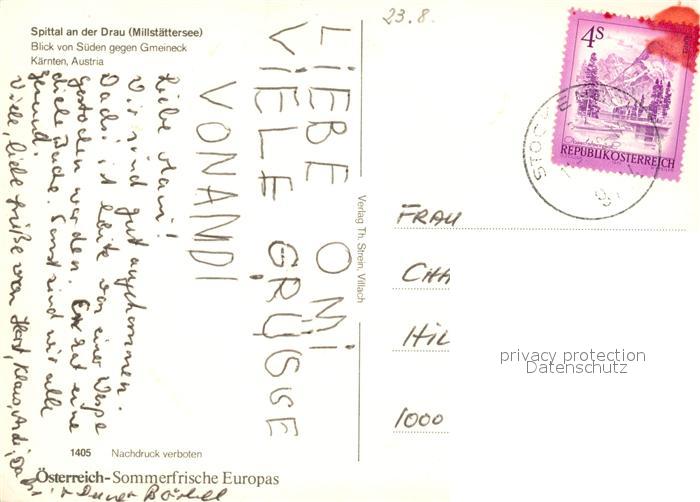 Spittal an der Drau (Millstättersee)
Blick von Süden gegen Gmeineck
Kärnten, Austria
23.8.
4S
REPUBLIK ÖSTERREICH
STOCK
LIEBE OMI
VIELE GRÜSSE
VONANDI
Liebe Mami!
Wir sind gut angekommen.
Dadi ist heute von einer Wespe
gestochen worden. Er hat eine
dicke Backe. Sonst sind wir alle
gesund.
Viele, liebe Grüße von Horst, Klaus, Andi,
Deiner
Verlag Th. Strein, Villach
FRAU
CHA
HIL
1000
privacy protection
Datenschutz
1405 Nachdruck verboten
Österreich-Sommerfrische Europas